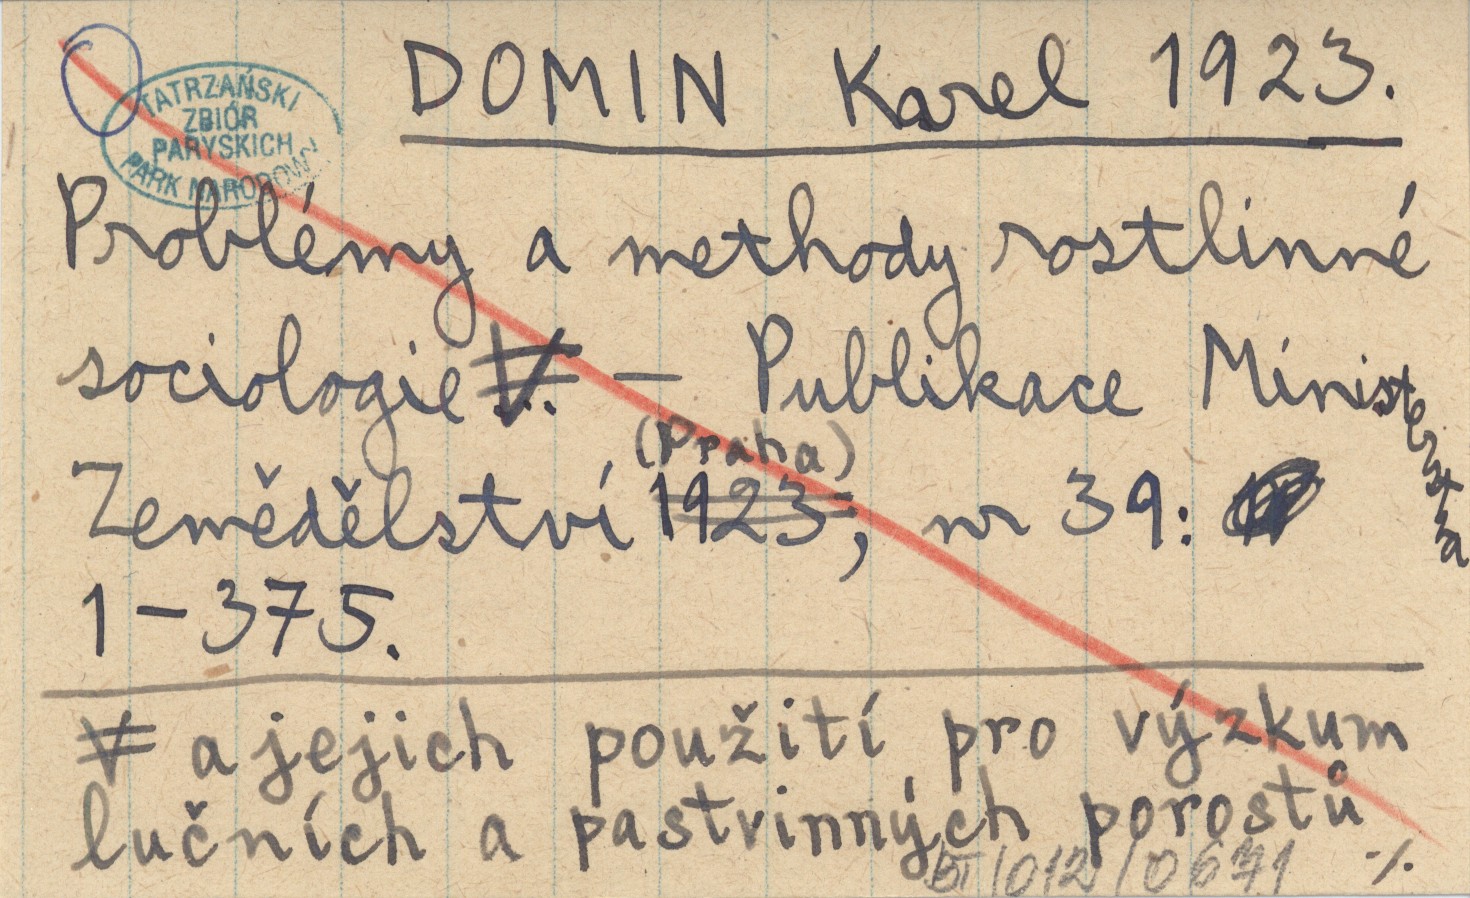 TATRZAŃSKI
ZBIÓR
PARYSKICH
PARK NARODOWY
DOMIN Karel 1923.
Problémy a methody rostlinné
sociologie V... — Publikace Ministerstva
(Praha)
Zemědělství 1923, nr 39:
1-375.
V a jejich použití pro výzkum
lučních a pastvinných porostů
BT/012/0671 -/.